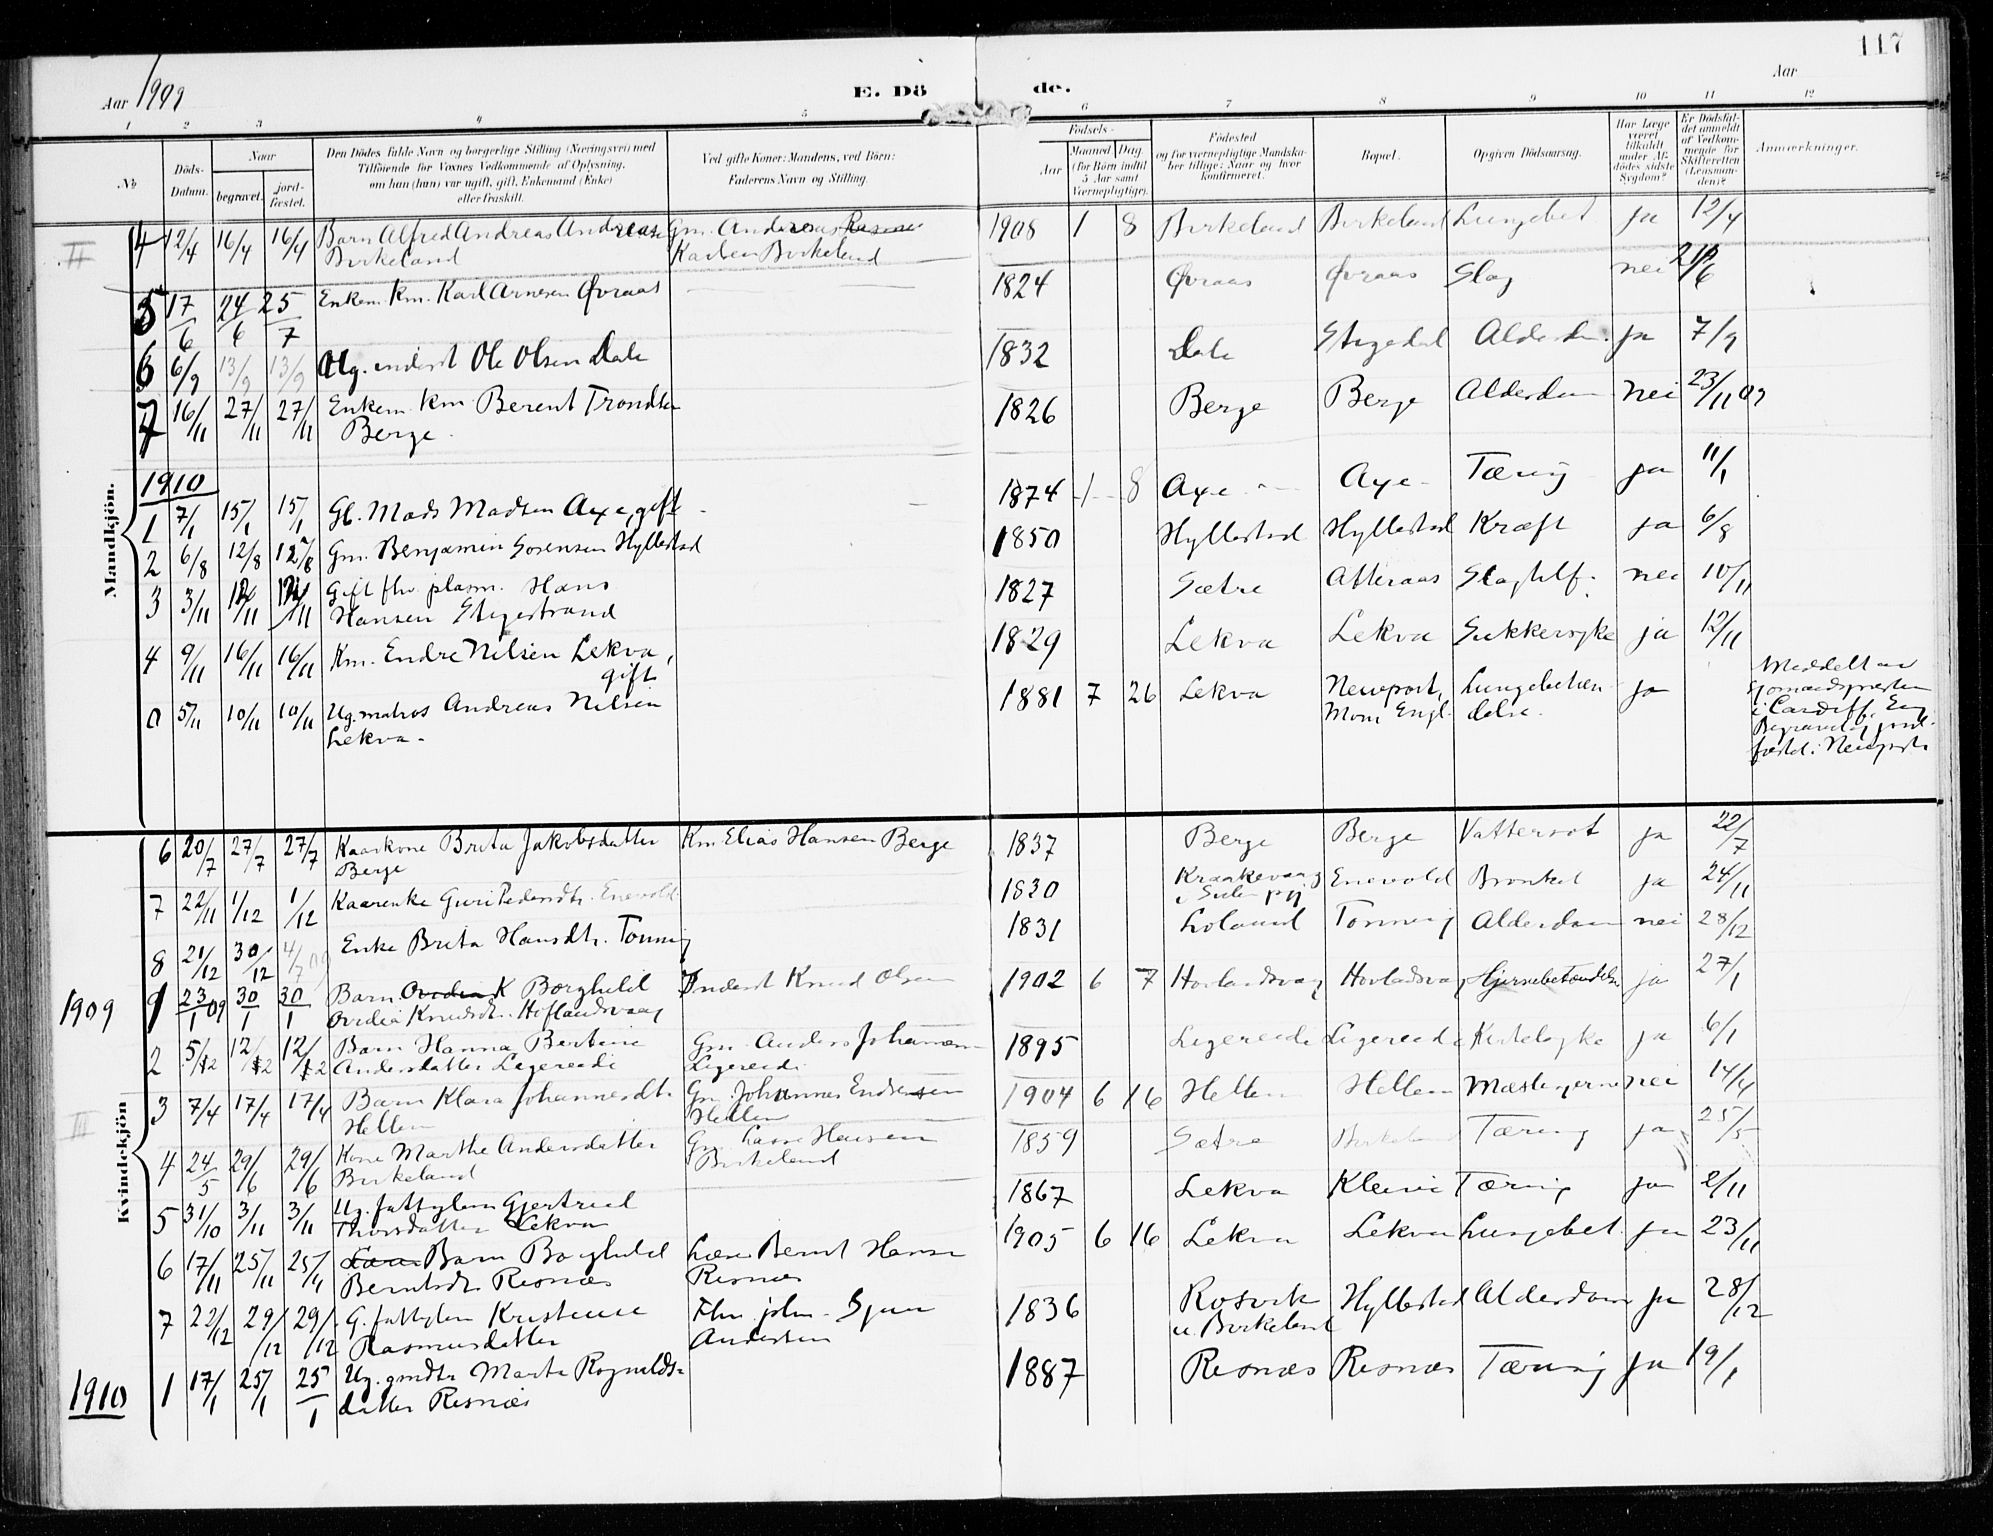 117
Aar 1909
E. Dö de.
Aar
1 2 3 4 5 6 7 8 9 10 11 12
No
Döds-Datum.
Naar
begravet.
jord-fæstet.
Den Dödes fulde Navn og borgerlige Stilling (Næringsvei) med
Tilföiende for Voxnes Vedkommende af Oplysning,
om han (hun) var ugift, gift, Enkemand (Enke)
eller fraskilt.
Ved gifte Koner: Mandens, ved Börn:
Faderens Navn og Stilling.
Födsels-
Aar
Maaned Dag.
(for Börn indtil
5 Aar samt
Værnepligtige).
Födested
og for værnepligtige Mandska-
ber tillige: Naar og hvor
konfirmeret.
Bopæl.
Opgiven Dödsaarsag.
Har Læge
været
tilkaldt
under Af-
dödes sidste
Sygdom?
Er Dödsfal-
det anmeldt
af Vedkom-
mende for
Skifteretten
(Lensman-
den)?
Anmærkninger.
Mandkjön.
II
4 12/4 16/4 16/4 Barn Alfred Andreas Andreasen Gm. Andreas 1908 1 8 Birkeland Birkeland Lungebet. ja 12/4
Birkeland Karlsen Birkeland
5 17/6 24/6 25/7 Enkem. Km. Karl Arnesen Øvraas 1824 Øvraas Øvraas Slag nei 21/6
6 6/9 13/9 13/9 Ug. inderst Ole Olsen Dale 1832 Dale Stigedal Alderdom. ja 7/9
7 16/11 27/11 27/11 Enkem. Km Berent Trondsen 1826 Berge Berge Alderdom nei 23/11 09
Berge.
1910
1 7/1 15/1 15/1 Gb. Mads Madsen Axe, gift 1874 1 8 Axe Axe Tæring ja 11/1
2 6/8 12/8 12/8 Gm. Benjamin Sørensen Hyllestad 1850 Hyllestad Hyllestad Kræft ja 6/8
3 3/11 12/11 12/11 Gift fhv. plasm. Hans 1827 Sætre Atteraas Slagtilf. nei 10/11
Hansen Stigestrand
4 9/11 16/11 16/11 Km. Endre Nilsen Lekva, 1829 Lekva Lekva Sukkersyke ja 12/11
gift
0 5/11 10/11 10/11 Ug. matros Andreas Nilsen 1881 7 26 Lekva Newport, Lungebetæn- ja Meddelt av
Lekva. Mon. Engl. delse.
sjømandspresten
i Cardiff. Eng
Begravet og jord-
fæstet i Newport.
Kvindekjön
6 20/7 27/7 27/7 Kaarkone Brita Jakobsdatter Km Elias Hansen Berge 1837 Berge Berge Vattersot ja 22/7
Berge
7 22/11 1/12 1/12 Kaarenke Guri Pedersdtr. Enevold 1830 Kraakevaag Enevold Bronkit ja 24/11
i Sulen pgj
8 21/12 30/12 4/7 09 Enke Brita Hansdtr. Tonning 1831 Loland Tonning Alderdom nei 28/12
1909
1 23/1 09 30/1 30/1 Barn Ovidia K Borghild Inderst Knud Olsen 1902 6 7 Hovlandsvaag Hovlandsvaag Hjernebetændelse ja 27/1
Ovidia Knudsdtr. Hoflandsvaag
2 5/12 12/12 12/12 Barn Hanna Bertine Gm. Anders Johannesen 1895 Legereide Legereide Kirtelsyke ja 6/1
Andersdatter Legereide Legereide
III
3 7/4 17/4 17/4 Barn Klara Johannesdtr. Gm. Johannes Endresen 1904 6 16 Hellen Hellen Mæslinger nei 14/4
Hellen Hellen
4 24/5 29/6 29/6 Kone Marthe Andersdatter Gm Lasse Hansen 1859 Sætre Birkeland Tæring ja 25/5
Birkeland Birkeland
5 31/10 3/11 3/11 Ug. fattiglem Gjertrud 1867 Lekva Kleivi Tæring ja 2/11
Thorsdatter Lekva
6 17/11 25/11 25/11 Barn Borghild Læser Bernt Hansen 1905 6 16 Lekva Lekva Lungebet. ja 23/11
Berntsdtr. Risnæs Risnæs
7 22/12 29/12 29/12 G. fattiglem Kristense Fhv. 1836 Rosvik Hyllestad Alderdom ja 28/12
Rasmusdatter Andersen u. Birkeland
1910
1 17/1 25/1 25/1 Ug. gmdtr. Marta Rognalds- 1887 Risnæs Risnæs Tæring ja 19/1
datter Risnæs